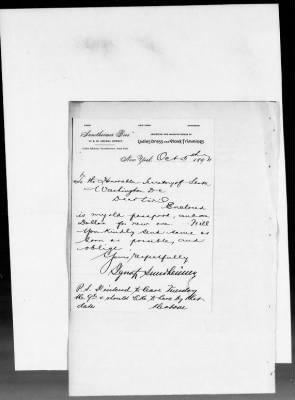 PARIS NEW YORK
Sundheimer Bros
IMPORTERS AND MANUFACTURERS OF
Ladies Dress and Cloak Trimmings
New York Oct 5th 189
To the Honorable Secretary of
Washington D.C.
Dear Sir
Enclosed
is my old passport and one
Dollar for new one Will
you kindly send same as
soon as possible, and
oblige
Yours respectfully
Sundheimer
P.S. I intend to leave Tuesday
the 9th & should like to have by
date